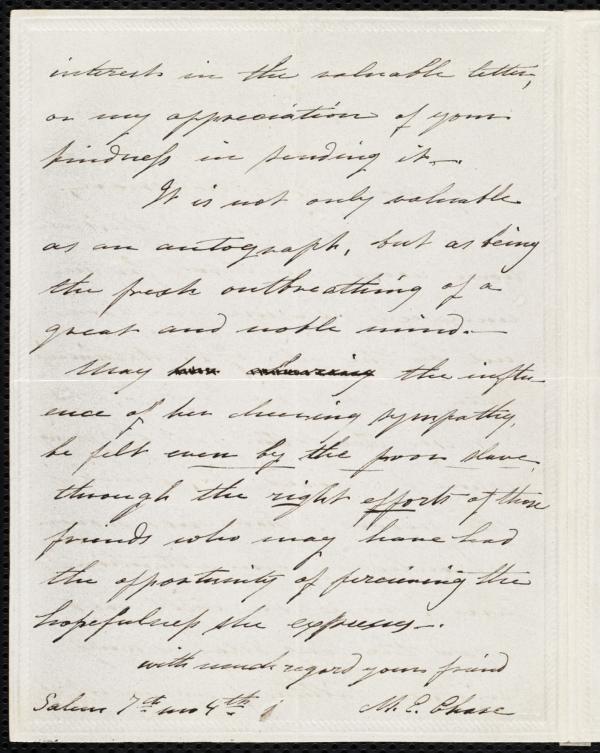 interest in the valuable letter,
or my appreciation of your
kindness in sending it.
It is not only valuable
as an autograph, but as being
the fresh outbreathing of a
great and noble mind.
May the influ
ence of her cheering sympathy,
be felt even by the poor slave,
through the right efforts of those
friends who may have had
the opportunity of perceiving the
hopefulness she expresses.
with much regard your friend
Salem 7th mo 4th M. E. Chase